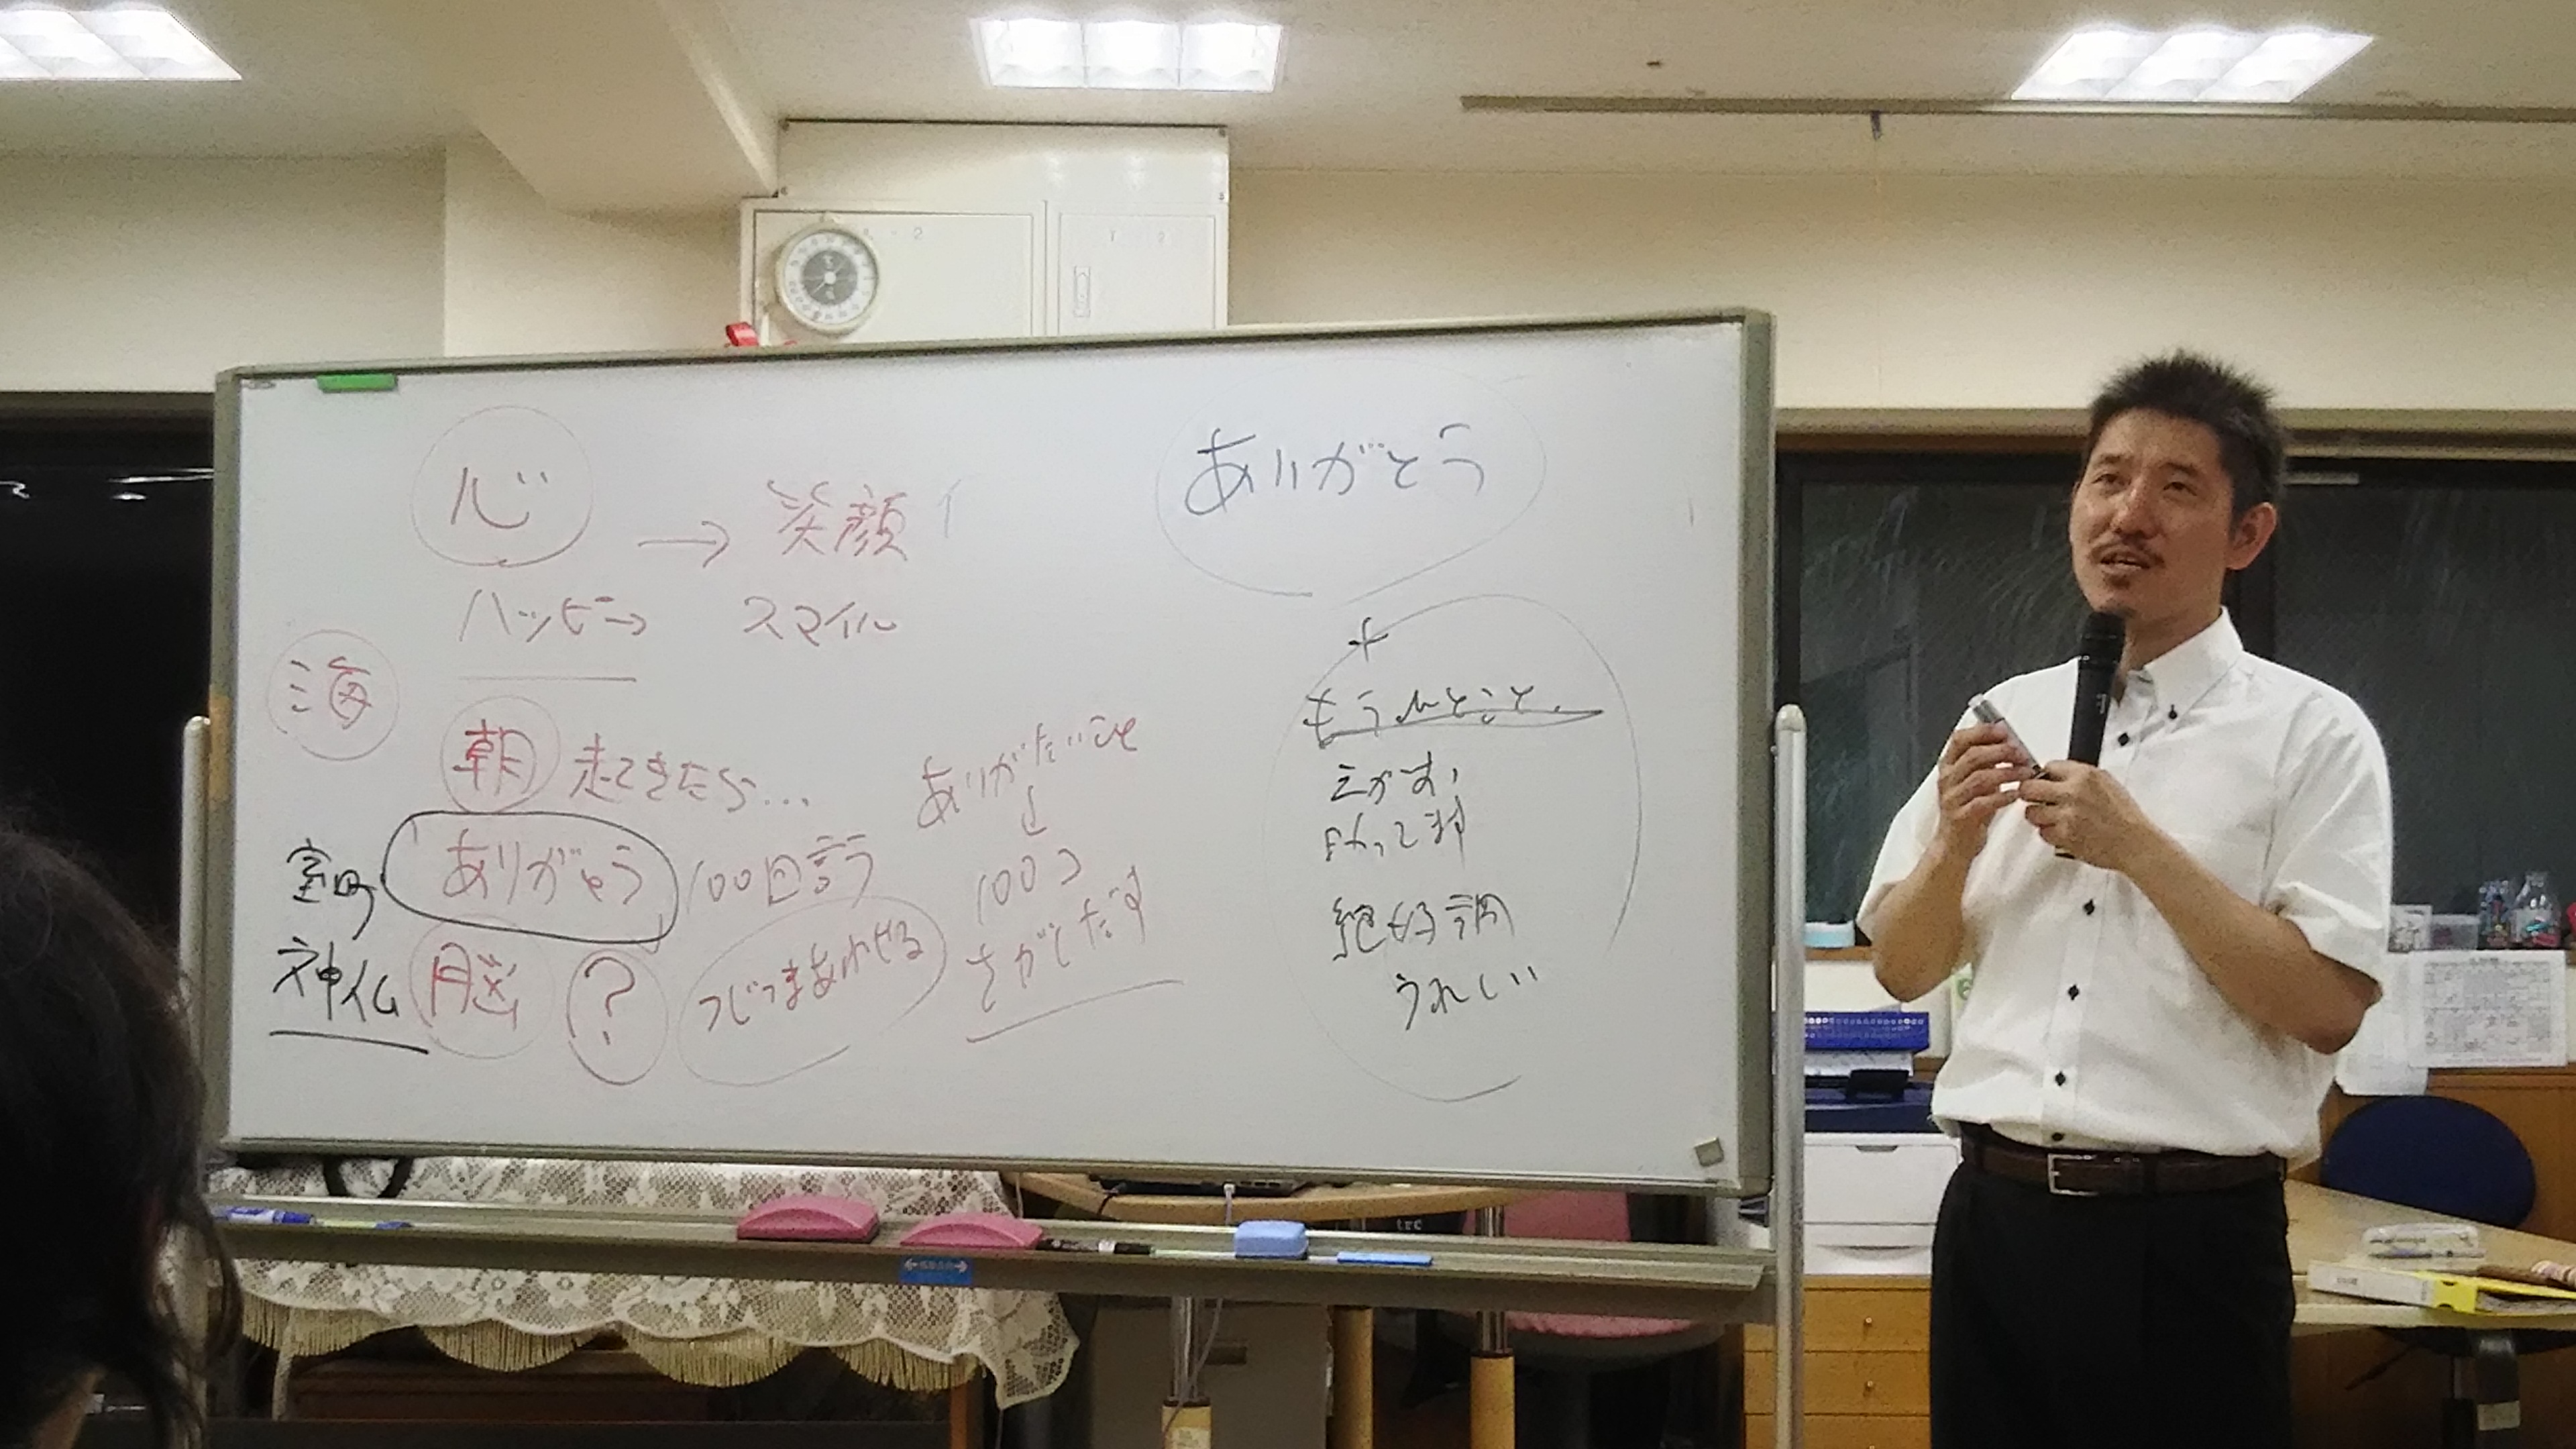 心 → 笑顔
ハッピー → スマイル
海
朝 起てきたら...
ありがとう 100回言う
室町
神仏
脳 ? つじつまあわせる
ありがたいこと
↓
100コ
さがしだす
ありがとう
+
もうひとこと、
絶好調
うれしい